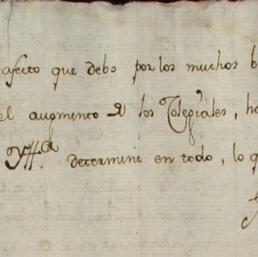 afecto que debo por los muchos b
el augmento de los Colegiales, ha
determine en todo, lo q